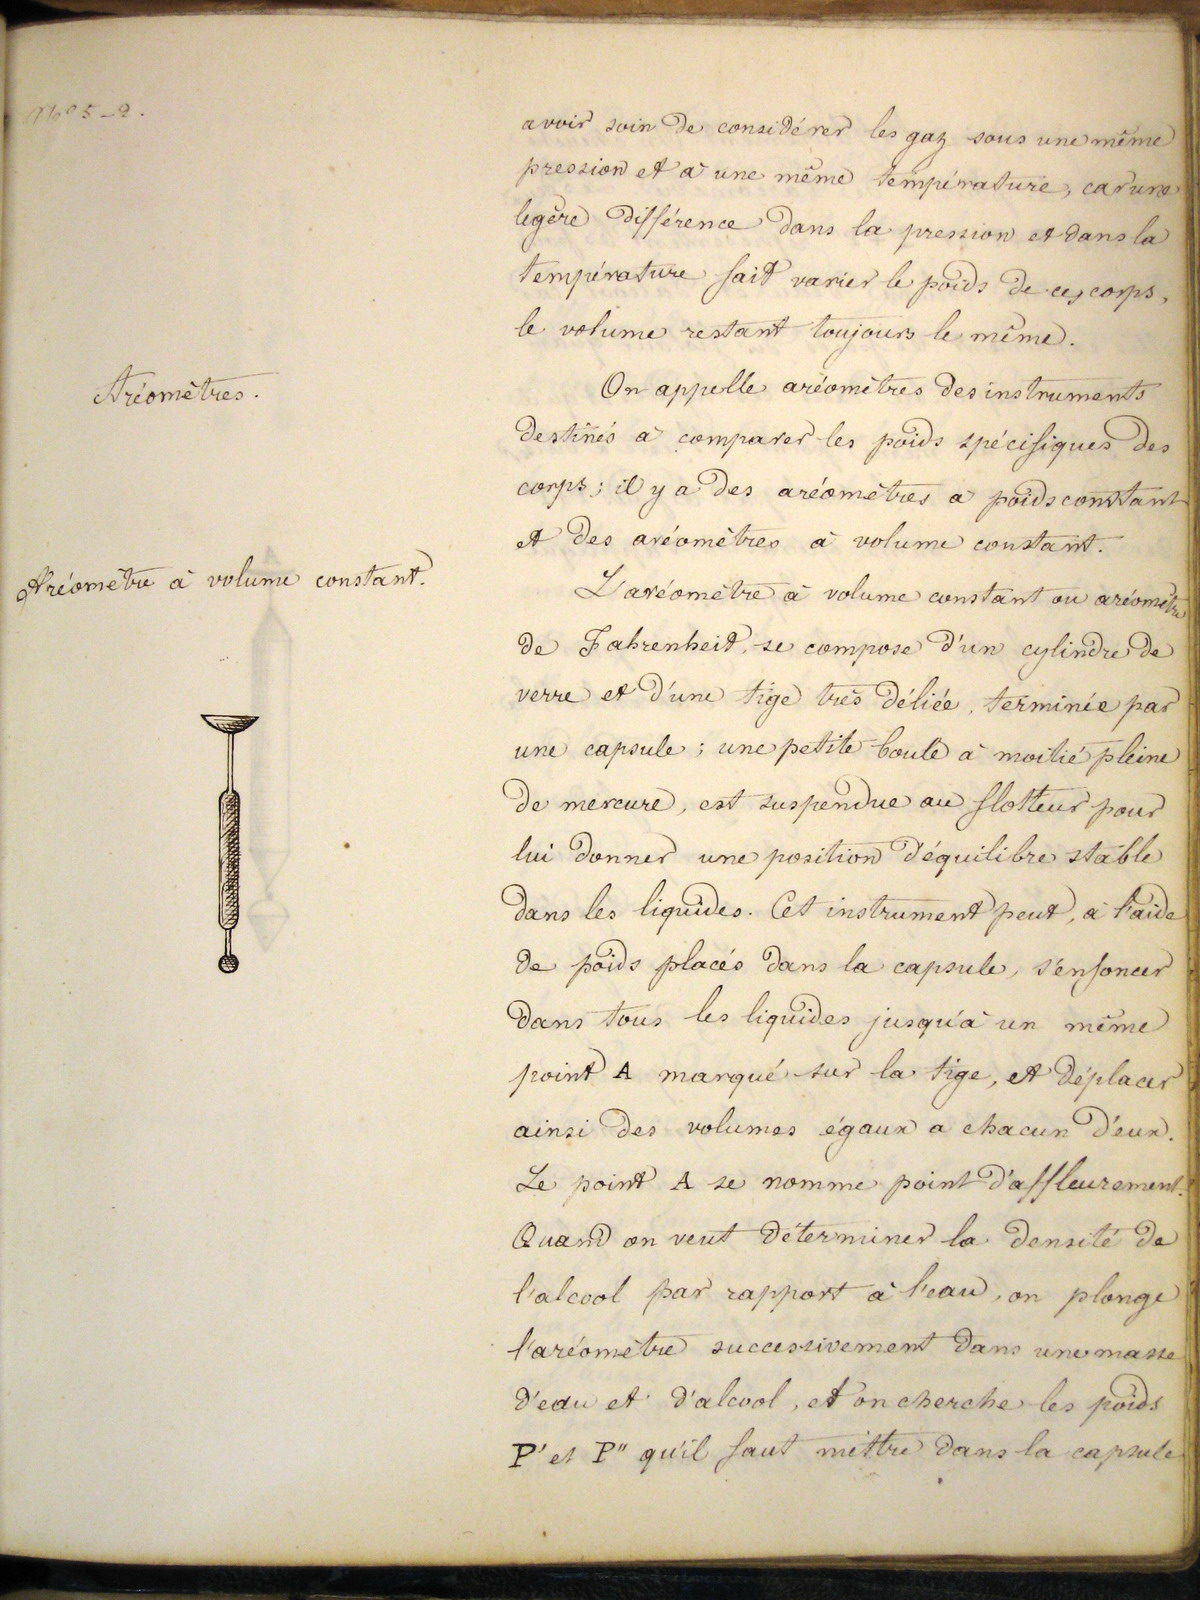 5-2.
avoir soin de considérer les gaz sous une même
pression et à une même température, car une
legère différence dans la pression et dans la
température fait varier le poids de ces corps,
le volume restant toujours le même.
Aréomètres.
On appelle aréomètres des instruments
destinés à comparer les poids spécifiques des
corps; il y a des aréomètres a poids constant
et des aréomètres à volume constant.
Aréomètre à volume constant.
L'aréomètre à volume constant ou aréomètre
de Fahrenheit, se compose d'un cylindre de
verre et d'une tige très déliée, terminée par
une capsule; une petite boule à moitié pleine
de mercure, est suspendue au flotteur pour
lui donner une position d'équilibre stable
dans les liquides. Cet instrument peut, à l'aide
de poids placés dans la capsule, s'enfoncer
dans tous les liquides jusqu'à un même
point A marqué sur la tige, et déplacer
ainsi des volumes égaux a chacun d'eux.
Le point A se nomme point d'affleurement.
Quand on veut déterminer la densité de
l'alcool par rapport à l'eau, on plonge
l'aréomètre successivement dans une masse
d'eau et d'alcool, et on cherche les poids
P' et P" qu'il faut mettre dans la capsule